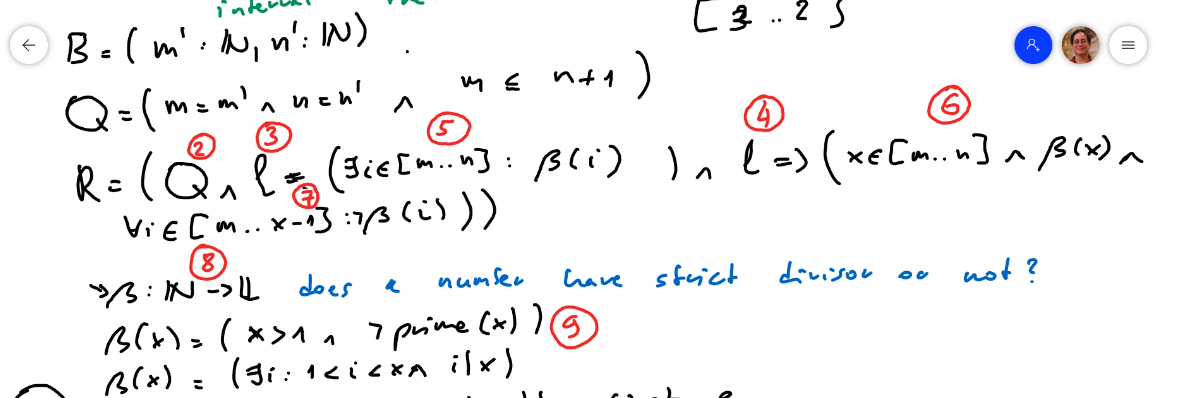 B = ( m' : ℕ, n' : ℕ ) .
[ 3 .. 2 ]
Q = ( m = m' ∧ n = n' ∧ m ≤ n+1 )
② ③ ⑤ ④ ⑥
R = ( Q ∧ l = (∃i∈[m..n] : β(i) ) ∧ l => (x∈[m..n] ∧ β(x) ∧
⑦
∀i∈[m..x-1] : ¬β(i) ))
⑧
→β : ℕ -> 𝕃 does a number have strict divisor or not?
β(x) = ( x>1 ∧ ¬prime(x) ) ⑨
β(x) = (∃i : 1<i<x ∧ i|x)